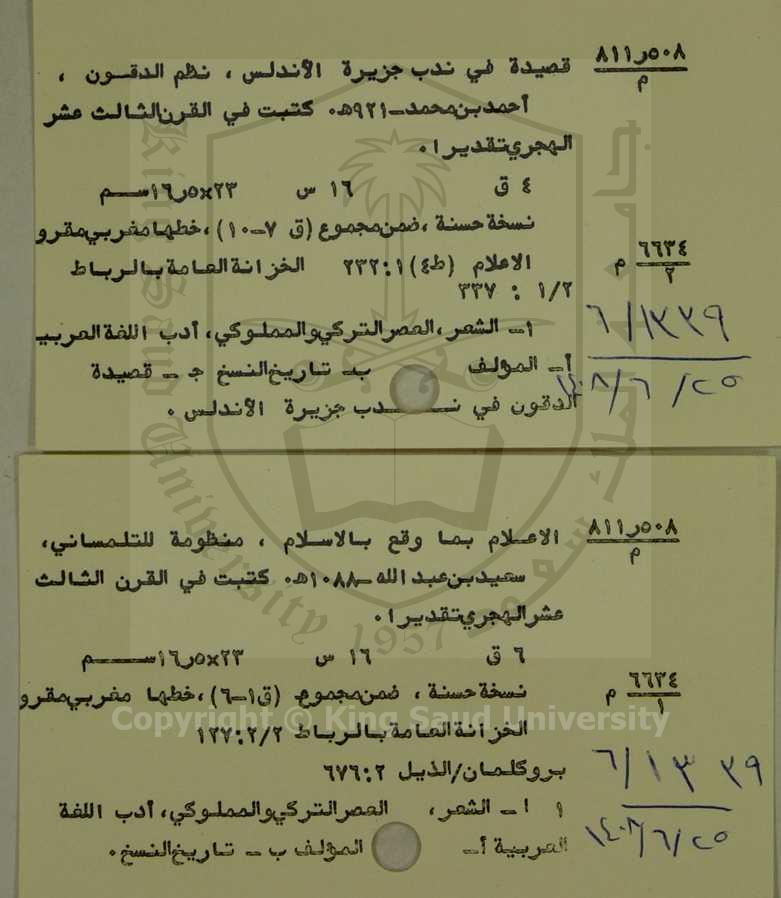 ٨١١٫٥٠٨
م
قصيدة في ندب جزيرة الأندلس ، نظم الدقــون ،
أحمد بن محمد ــ ٩٢١هـ٠ كتبت في القرن الثالث عشر
الهجري تقديرا ٠
٤ ق ١٦ س ٢٣×١٦٫٥ســم
نسخة حسنة ، ضمن مجموع (ق ٧ــ١٠) ، خطها مغربي مقرو
٦٦٣٤ م
٢
الاعلام (ط٤) ٢٣٢:١ الخزانة العامة بالرباط
١/٢ : ٣٣٧
١ــ الشعر ، العصر التركي والمملوكي ، أدب اللغة العربيـ
أــ المؤلف بــ تاريخ النسخ جـ ــ قصيدة
الدقون في نــــدب جزيرة الأندلس ٠
٦/١٣٣٩
١٤٠٨/٦/٢٥
٨١١٫٥٠٨
م
الاعــلام بمــا وقع بـالاسـلام ، منظومة للتلمساني،
سعيد بن عبد الله ــ١٠٨٨هـ٠ كتبت في القرن الثالث
عشر الهجري تقديرا ٠
٦ ق ١٦ س ٢٣×١٦٫٥ســم
نسخة حسنة ، ضمن مجموع (ق١ــ٦) ، خطهـا مغربي مقرو
٦٦٣٤ م
١
الخزانة العامة بالرباط ١٢٧:٢/٢
بروكلمان/الذيل ٦٧٦:٢
١ ١ــ الشعر، العصر التركي والمملوكي، أدب اللغة
العربية أــ المؤلف ب ــ تاريخ النسخ ٠
٦/١٣٣٩
١٤٠٨/٦/٢٥
King Saud University 1957
جامعة الملك سعود
Copyright © King Saud University